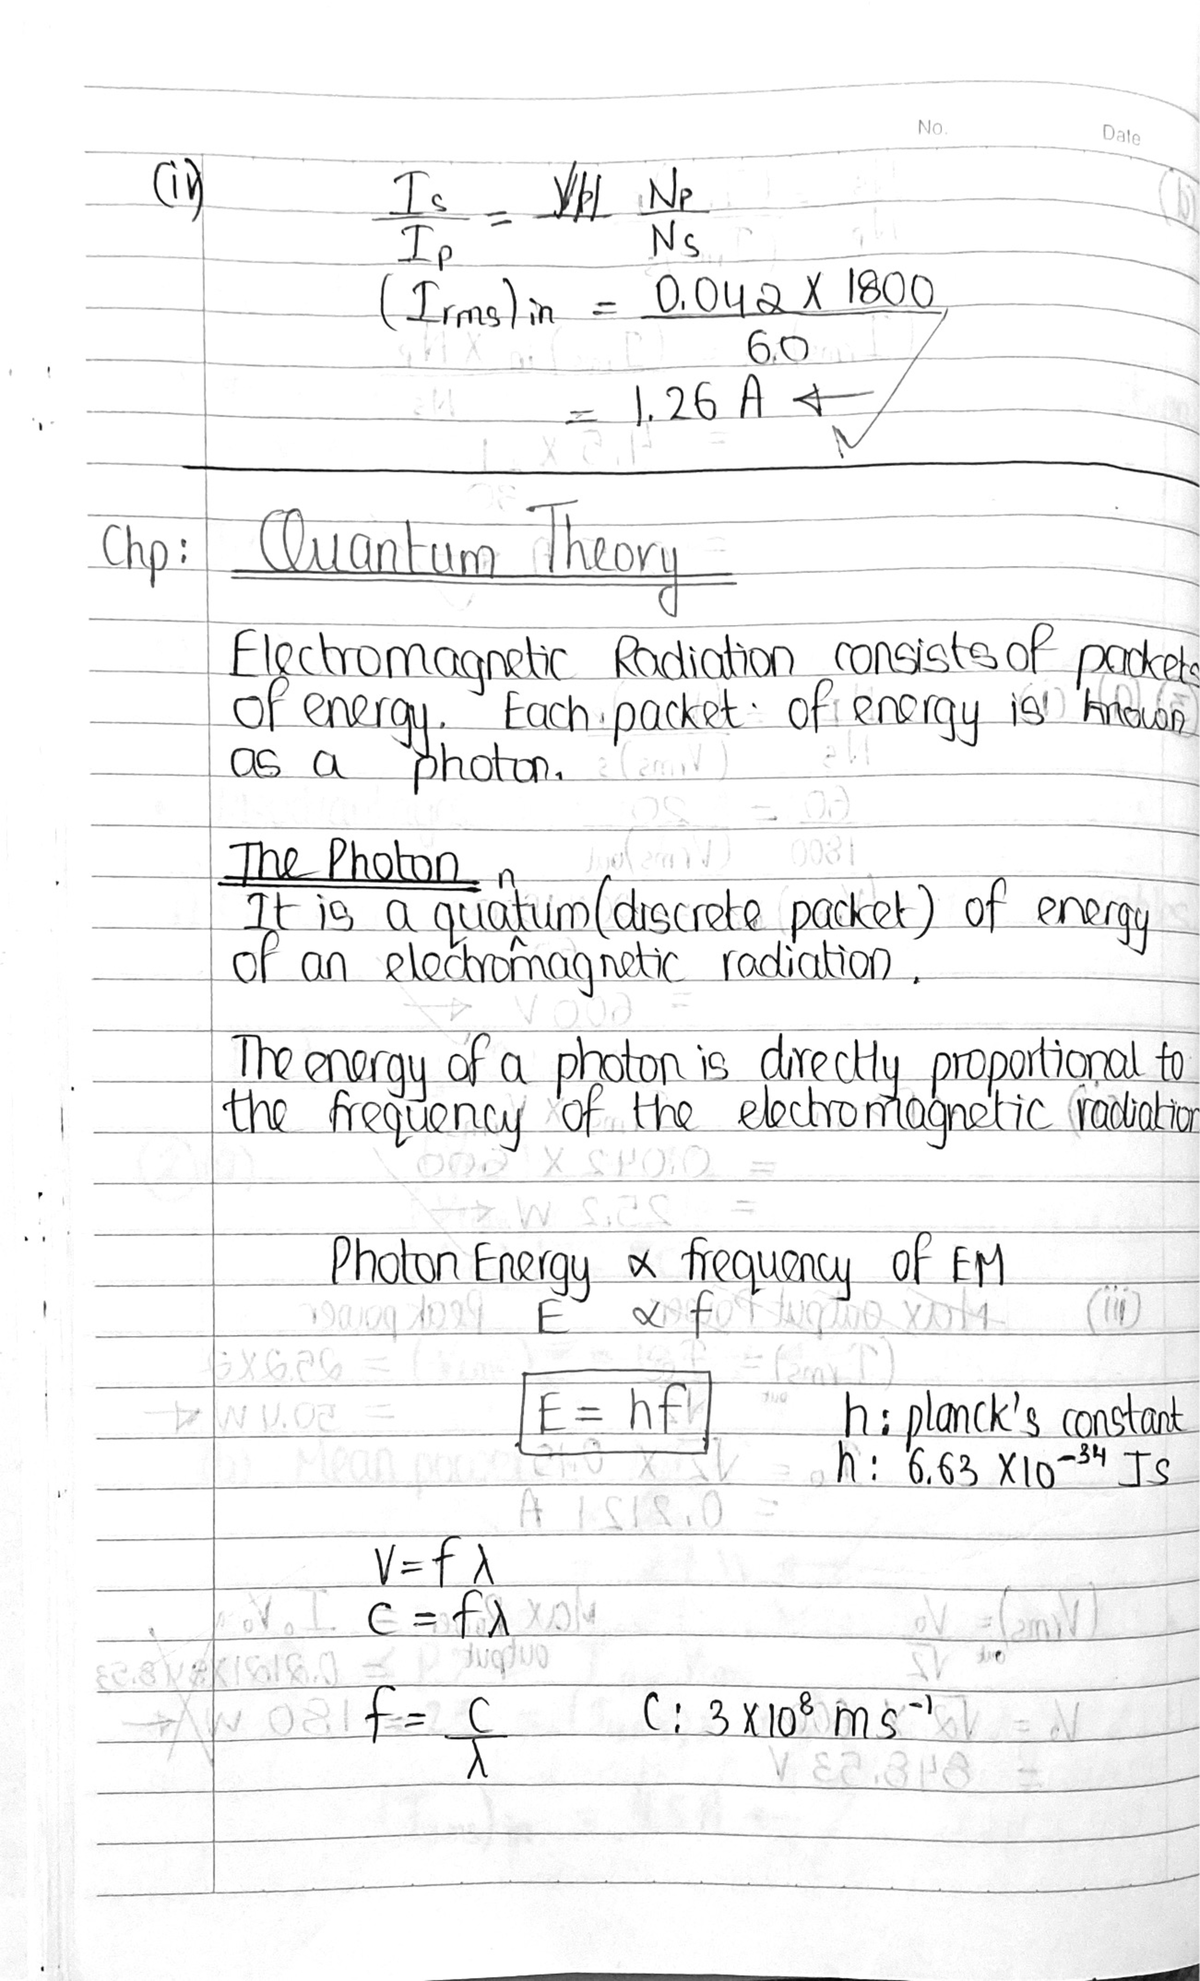 No. Date
(iv) Is/Ip = Np/Ns
(Irms)in = 0.042 X 1800 / 60
= 1.26 A
Chp: Quantum Theory
Electromagnetic Radiation consists of packets
of energy. Each packet of energy is known
as a photon.
The Photon
It is a quantum (discrete packet) of energy
of an electromagnetic radiation.
The energy of a photon is directly proportional to
the frequency of the electromagnetic radiation
Photon Energy ∝ frequency of EM
E ∝ f
E = hf h: planck's constant
h: 6.63 X10⁻³⁴ Js
V = f λ
C = fλ
f = C/λ C: 3 X10⁸ ms⁻¹